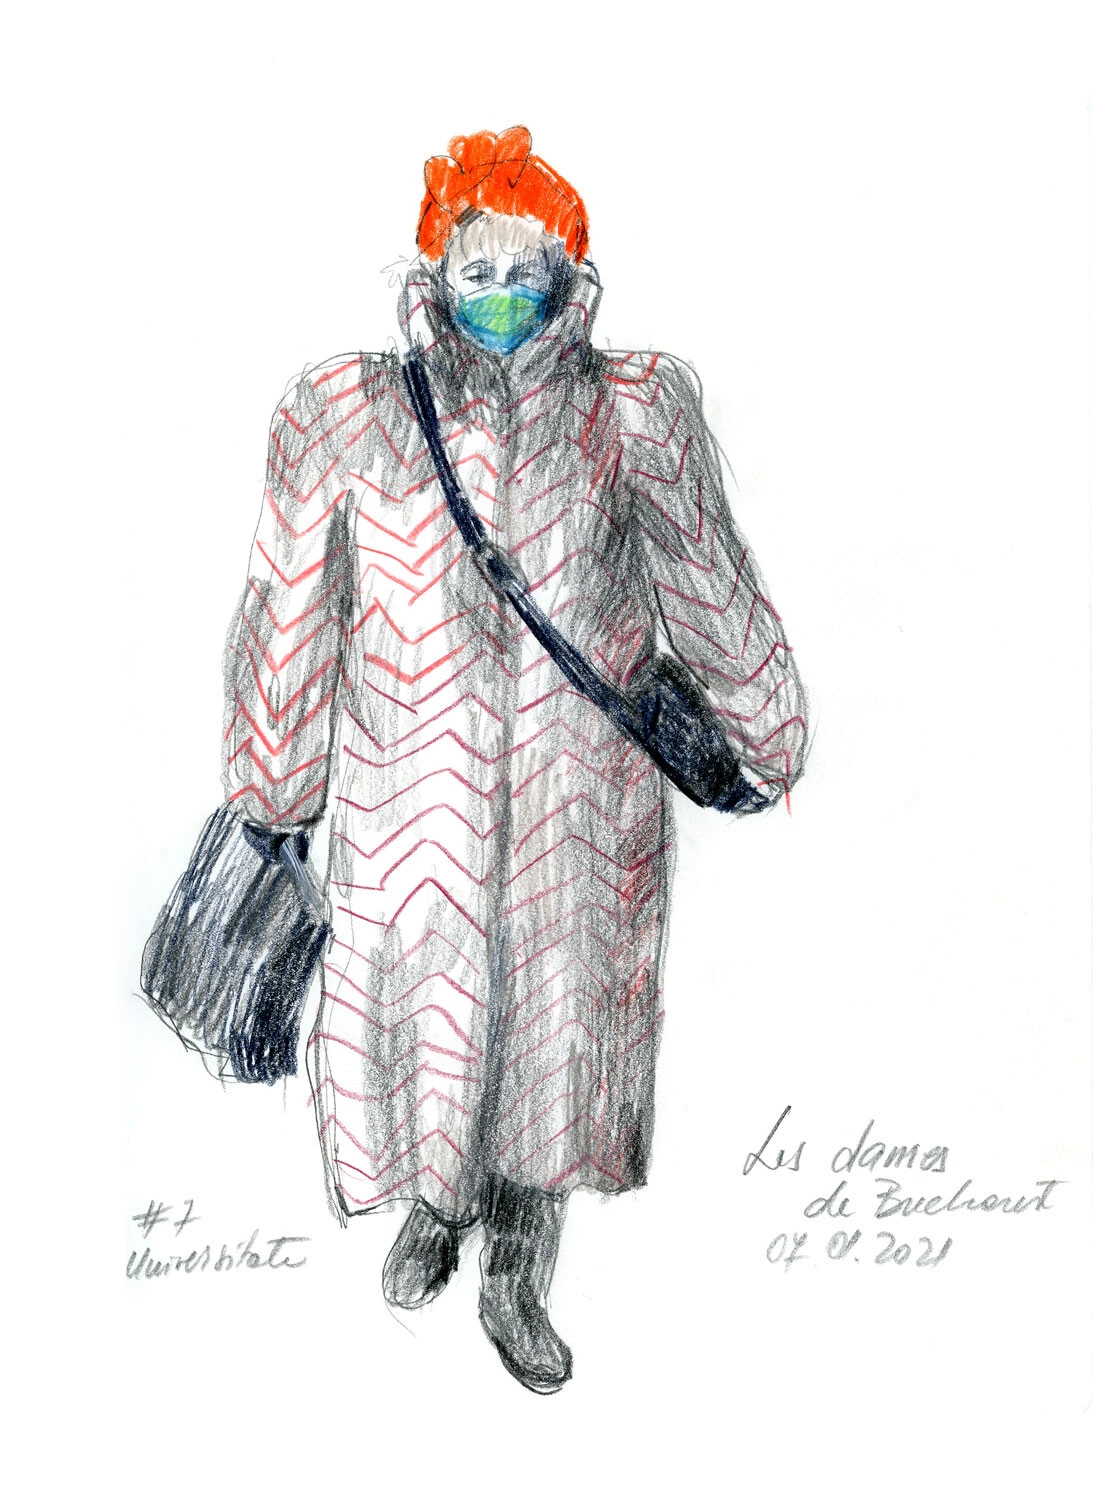 Les dames
de Bucharest
07.01.2021
#7
Universitate